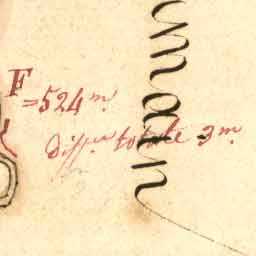 F
=524 m.
diff.ce totale 3 m.
man